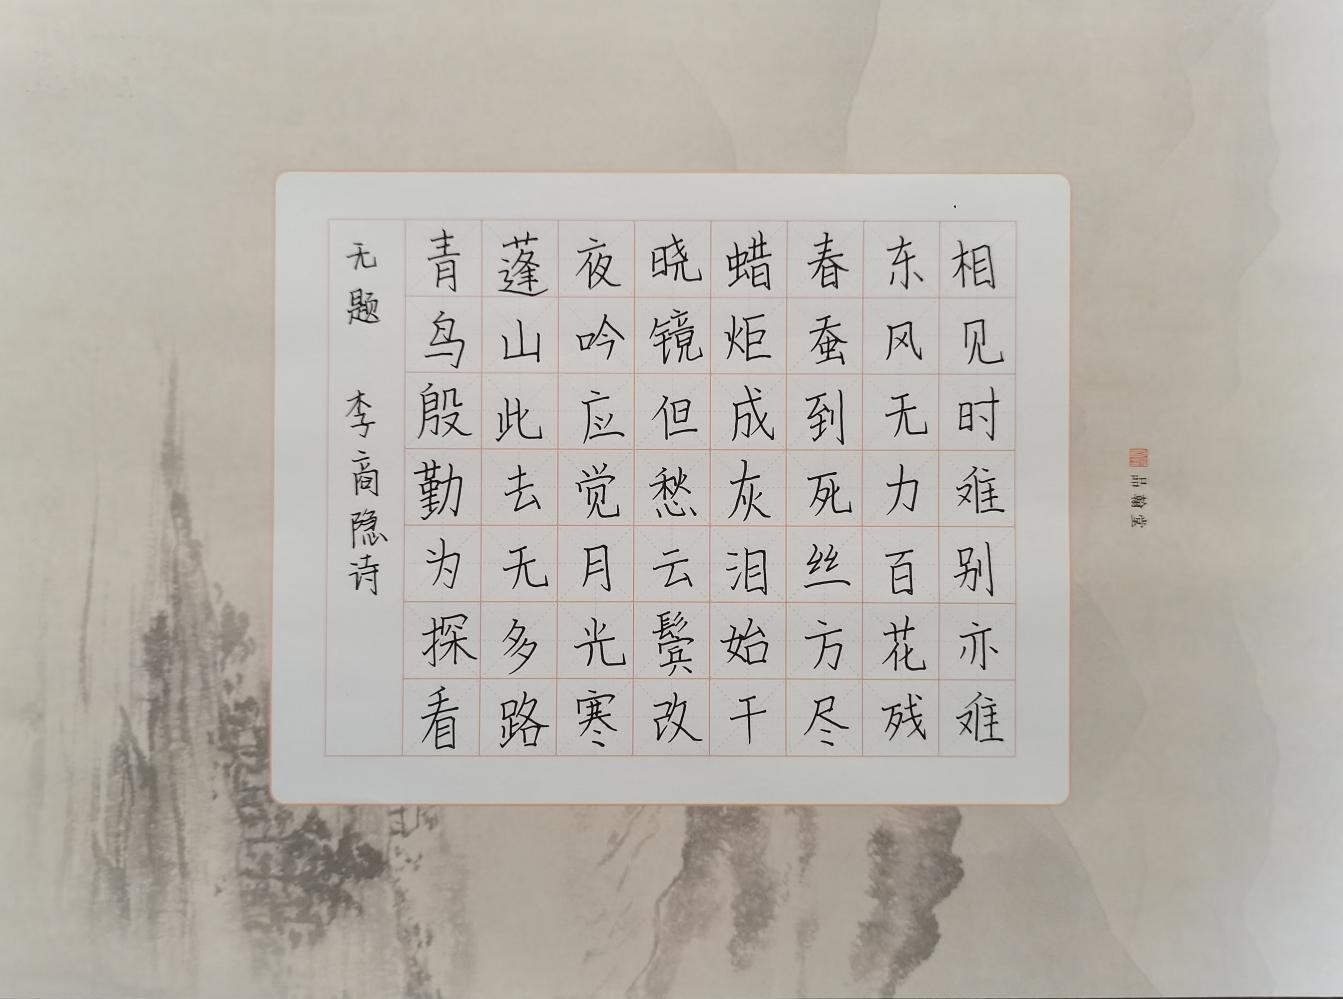 相见时难别亦难
东风无力百花残
春蚕到死丝方尽
蜡炬成灰泪始干
晓镜但愁云鬓改
夜吟应觉月光寒
蓬山此去无多路
青鸟殷勤为探看
无题 李商隐诗
品翰堂